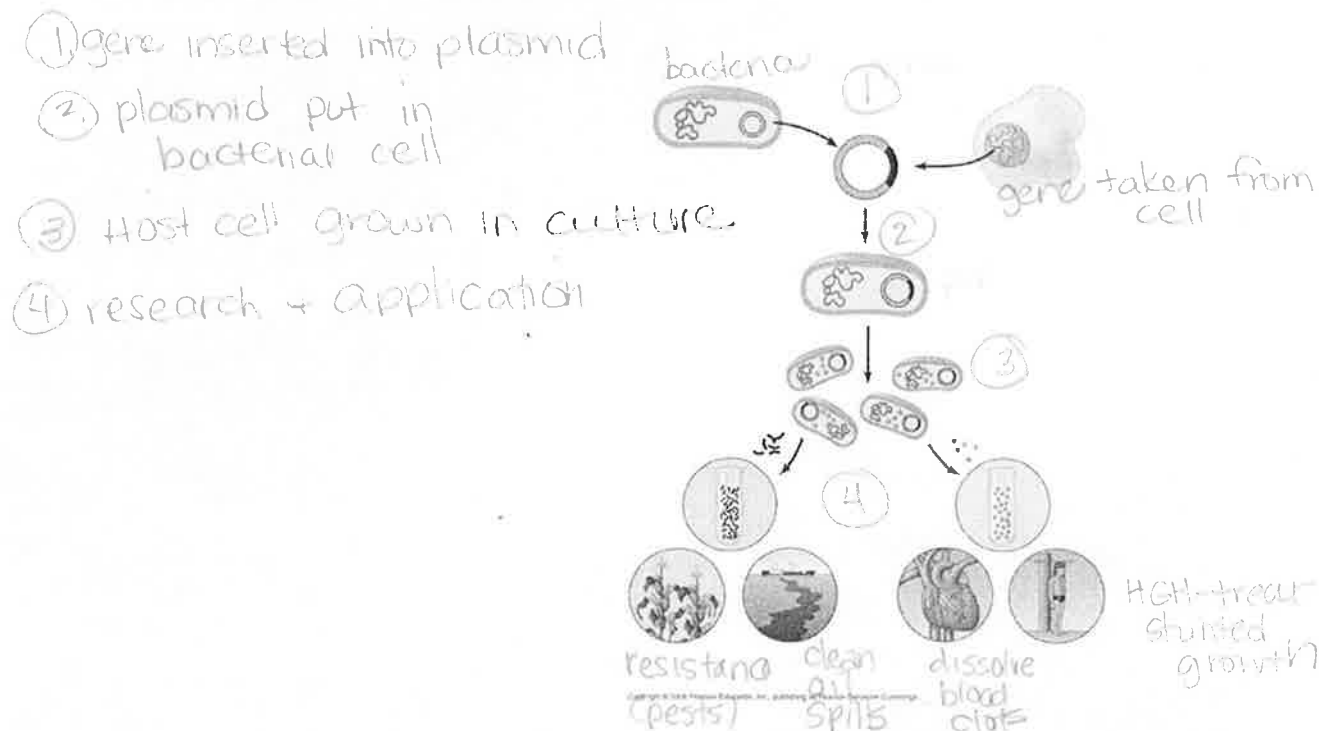 ① gene inserted into plasmid
② plasmid put in
bacterial cell
③ Host cell grown in culture
④ research + application
bacteria
1
gene taken from
cell
2
3
4
resistance
(pests)
clean
oil
spills
dissolve
blood
clots
HGH-treat
stunted
growth